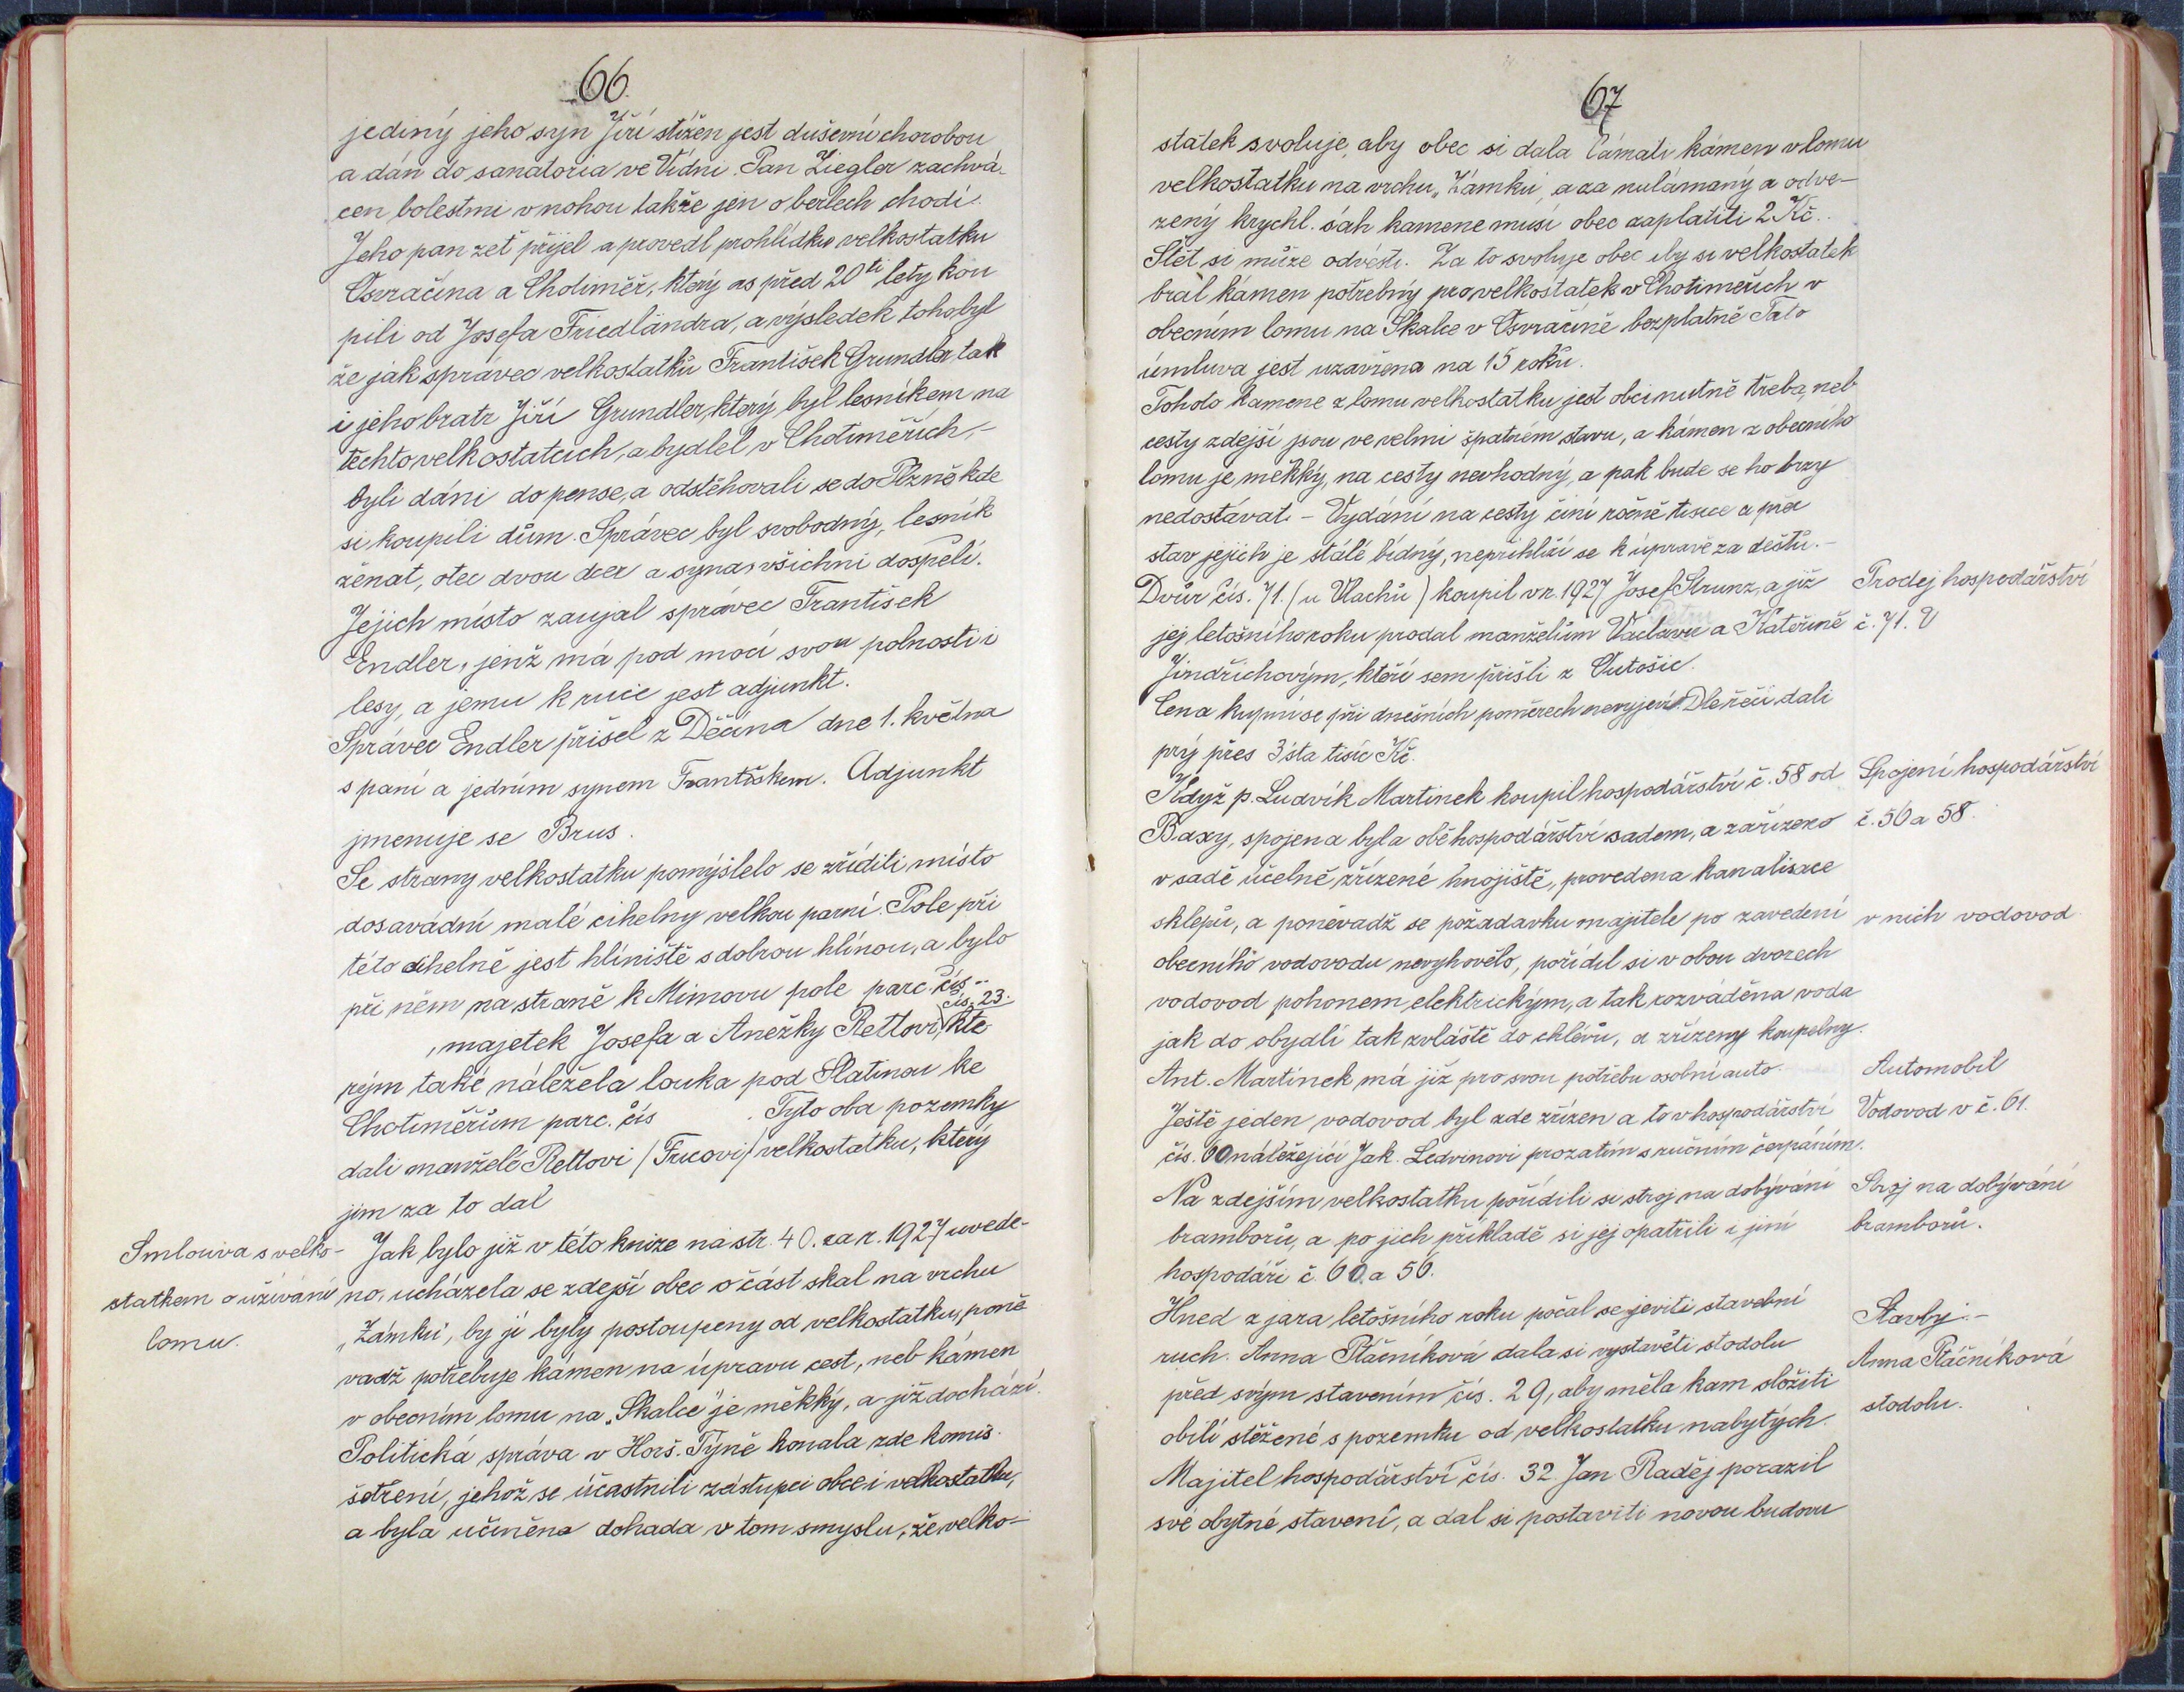 66.
jediný jeho syn Jiří stižen jest duševní chorobou
a dán do sanatoria ve Vídni. Pan Ziegler zachvá-
cen bolestmi v nohou takže jen o berlech chodí.
Jeho pan zeť přijel a provedl prohlídku velkostatku
Osvračína a Chotiměř, který as před 20ti lety kou
pili od Josefa Friedländra, a výsledek toho byl
že jak správec velkostatků František Grundler tak
i jeho bratr Jiří Grundler, který byl lesníkem na
těchto velkostatcích, a bydlel v Chotiměřích, -
byli dáni do pense, a odstěhovali se do Plzně kde
si koupili dům. Správec byl svobodný, lesník
ženat, otec dvou dcer a syna, všichni dospělí.
Jejich místo zaujal správec František
Endler, jenž má pod mocí svou polnosti i
lesy, a jemu k ruce jest adjunkt.
Správec Endler přišel z Děčína dne 1. května
s paní a jedním synem Františkem. Adjunkt
jmenuje se Brus.
Se strany velkostatku pomýšlelo se zříditi místo
dosavádní malé cihelny velkou parní. Pole při
této cihelně jest hliniště s dobrou hlínou, a bylo
při něm na straně k Mimovu pole parc. čís..
, majetek Josefa a Anežky Rettovi, čís. 23. kte
rým také náležela louka pod Slatinou ke
Chotiměřům parc. čís . Tyto oba pozemky
dali manželé Rettovi (Fricovi) velkostatku, který
jim za to dal
Smlouva s velko-
statkem o užívání
lomu.
Jak bylo již v této knize na str. 40. za r. 1927 uvede-
no, ucházela se zdejší obec o část skal na vrchu
„Zámku", by jí byly postoupeny od velkostatku, poně
vadž potřebuje kámen na úpravu cest, neb kámen
v obecním lomu na „Skalce" je měkký, a již dochází.
Politická správa v Horš. Týně konala zde komis.
šetření, jehož se účastnili zástupci obce i velkostatku,
a byla učiněna dohada v tom smyslu, že velko-
67
statek svoluje, aby obec si dala lámati kámen v lomu
velkostatku na vrchu „Zámku", a za nulámaný a odve-
zený krychl. sáh kamene musí obec zaplatiti 2 Kč..
Štět si může odvésti. Za to svoluje obec aby si velkostatek
bral kámen potřebný pro velkostatek v Chotiměřích v
obecním lomu na Skalce v Osvračíně bezplatně Tato
úmluva jest uzavřena na 15 roků.
Tohoto kamene z lomu velkostatku jest obci nutně třeba, neb
cesty zdejší jsou ve velmi špatném stavu, a kámen z obecního
lomu je měkký, na cesty nevhodný, a pak bude se ho brzy
nedostávati - Vydání na cesty činí ročně tisíce a přec
stav jejich je stálé bídný, nepřihlíží se k úpravě za deštů. -
Dvůr čís. 71. (u Vlachů) koupil v r. 1927 Josef Strunz, a již
Prodej hospodářství
jej letošního roku prodal manželům Václavu a Kateřině
č. 71. V
Jindřichovým, kteří sem přišli z Outošic.
Cena kupní se při dnešních poměrech nevyjeví. Dle řečí dali
prý přes 3 sta tisíc Kč.
Když p. Ludvík Martinek koupil hospodářství č. 58 od
Spojení hospodářství
Baxy, spojena byla obě hospodářství sadem, a zařízeno
č. 56 a 58.
v sadě účelně zřízené hnojiště, provedena kanalisace
sklepů, a poněvadž se požadavku majitele po zavedení
v nich vodovod
obecního vodovodu nevyhovělo, pořídil si v obou dvorech
vodovod pohonem elektrickým, a tak rozváděna voda
jak do obydlí tak zvláště do chlévů, a zřízeny koupelny.
Ant. Martinek má již pro svou potřebu osobní auto.
Automobil
Ještě jeden vodovod byl zde zřízen a to v hospodářství
Vodovod v č. 61.
čís. 60 náležející Jak. Ledvinovi prozatím s ručním čerpáním.
Na zdejším velkostatku pořídili si stroj na dobývání
Stroj na dobývání
bramborů, a po jich příkladě si jej opatřili i jiní
bramborů.
hospodáři č. 60. a 56.
Hned z jara letošního roku počal se jeviti stavební
Stavby: -
ruch. Anna Ptáčníková dala si vystavěti stodolu
Anna Ptáčníková
před svým stavením čís. 29, aby měla kam složiti
stodolu.
obilí stěžené s pozemku od velkostatku nabytých.
Majitel hospodářství čís. 32 Jan Raděj porazil
své obytné stavení, a dal si postaviti novou budovu